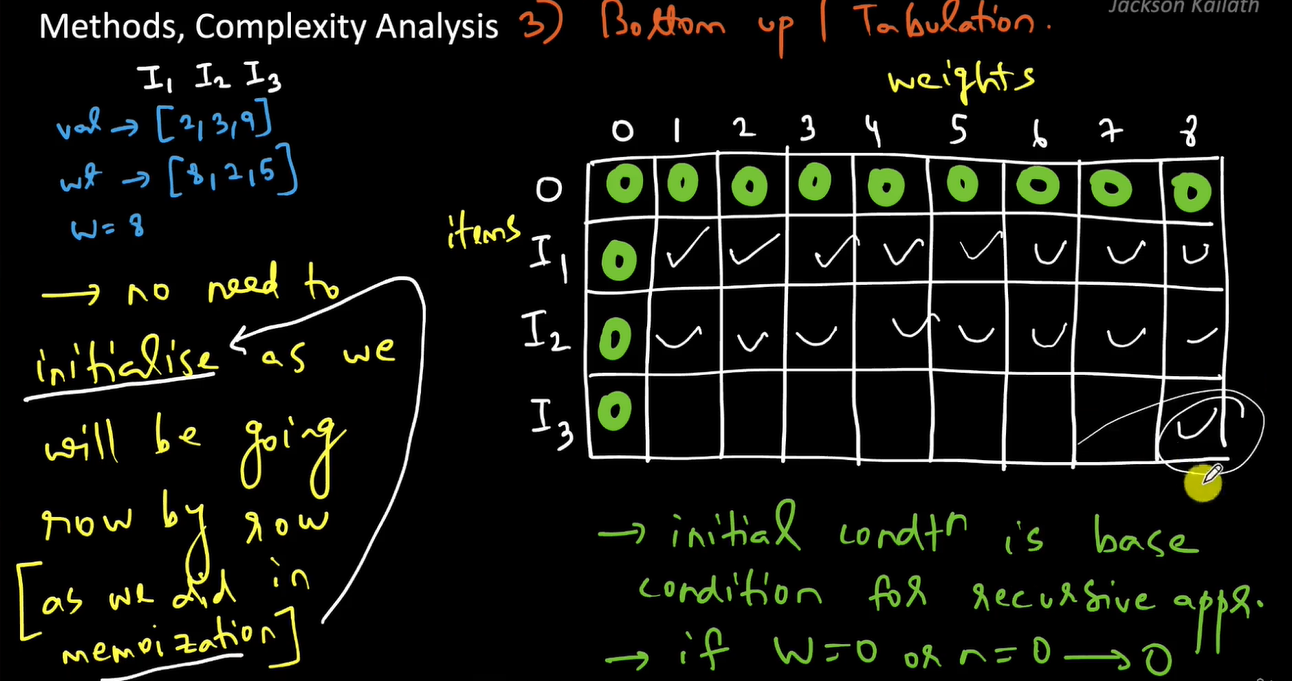 Jackson Kailath
Methods, Complexity Analysis 3) Bottom up | Tabulation.
I1 I2 I3
val → [2,3,9]
wt → [8,2,5]
W = 8
→ no need to
initialise as we
will be going
row by row
[as we did in
memoization]
weights
0 1 2 3 4 5 6 7 8
items
0 0 0 0 0 0 0 0 0 0
I1 0 ✓ ✓ ✓ ✓ ✓ ✓ ✓ ✓
I2 0 ✓ ✓ ✓ ✓ ✓ ✓ ✓ ✓
I3 0 ✓
→ initial condtn is base
condition for recursive appr.
→ if W=0 or n=0 → 0